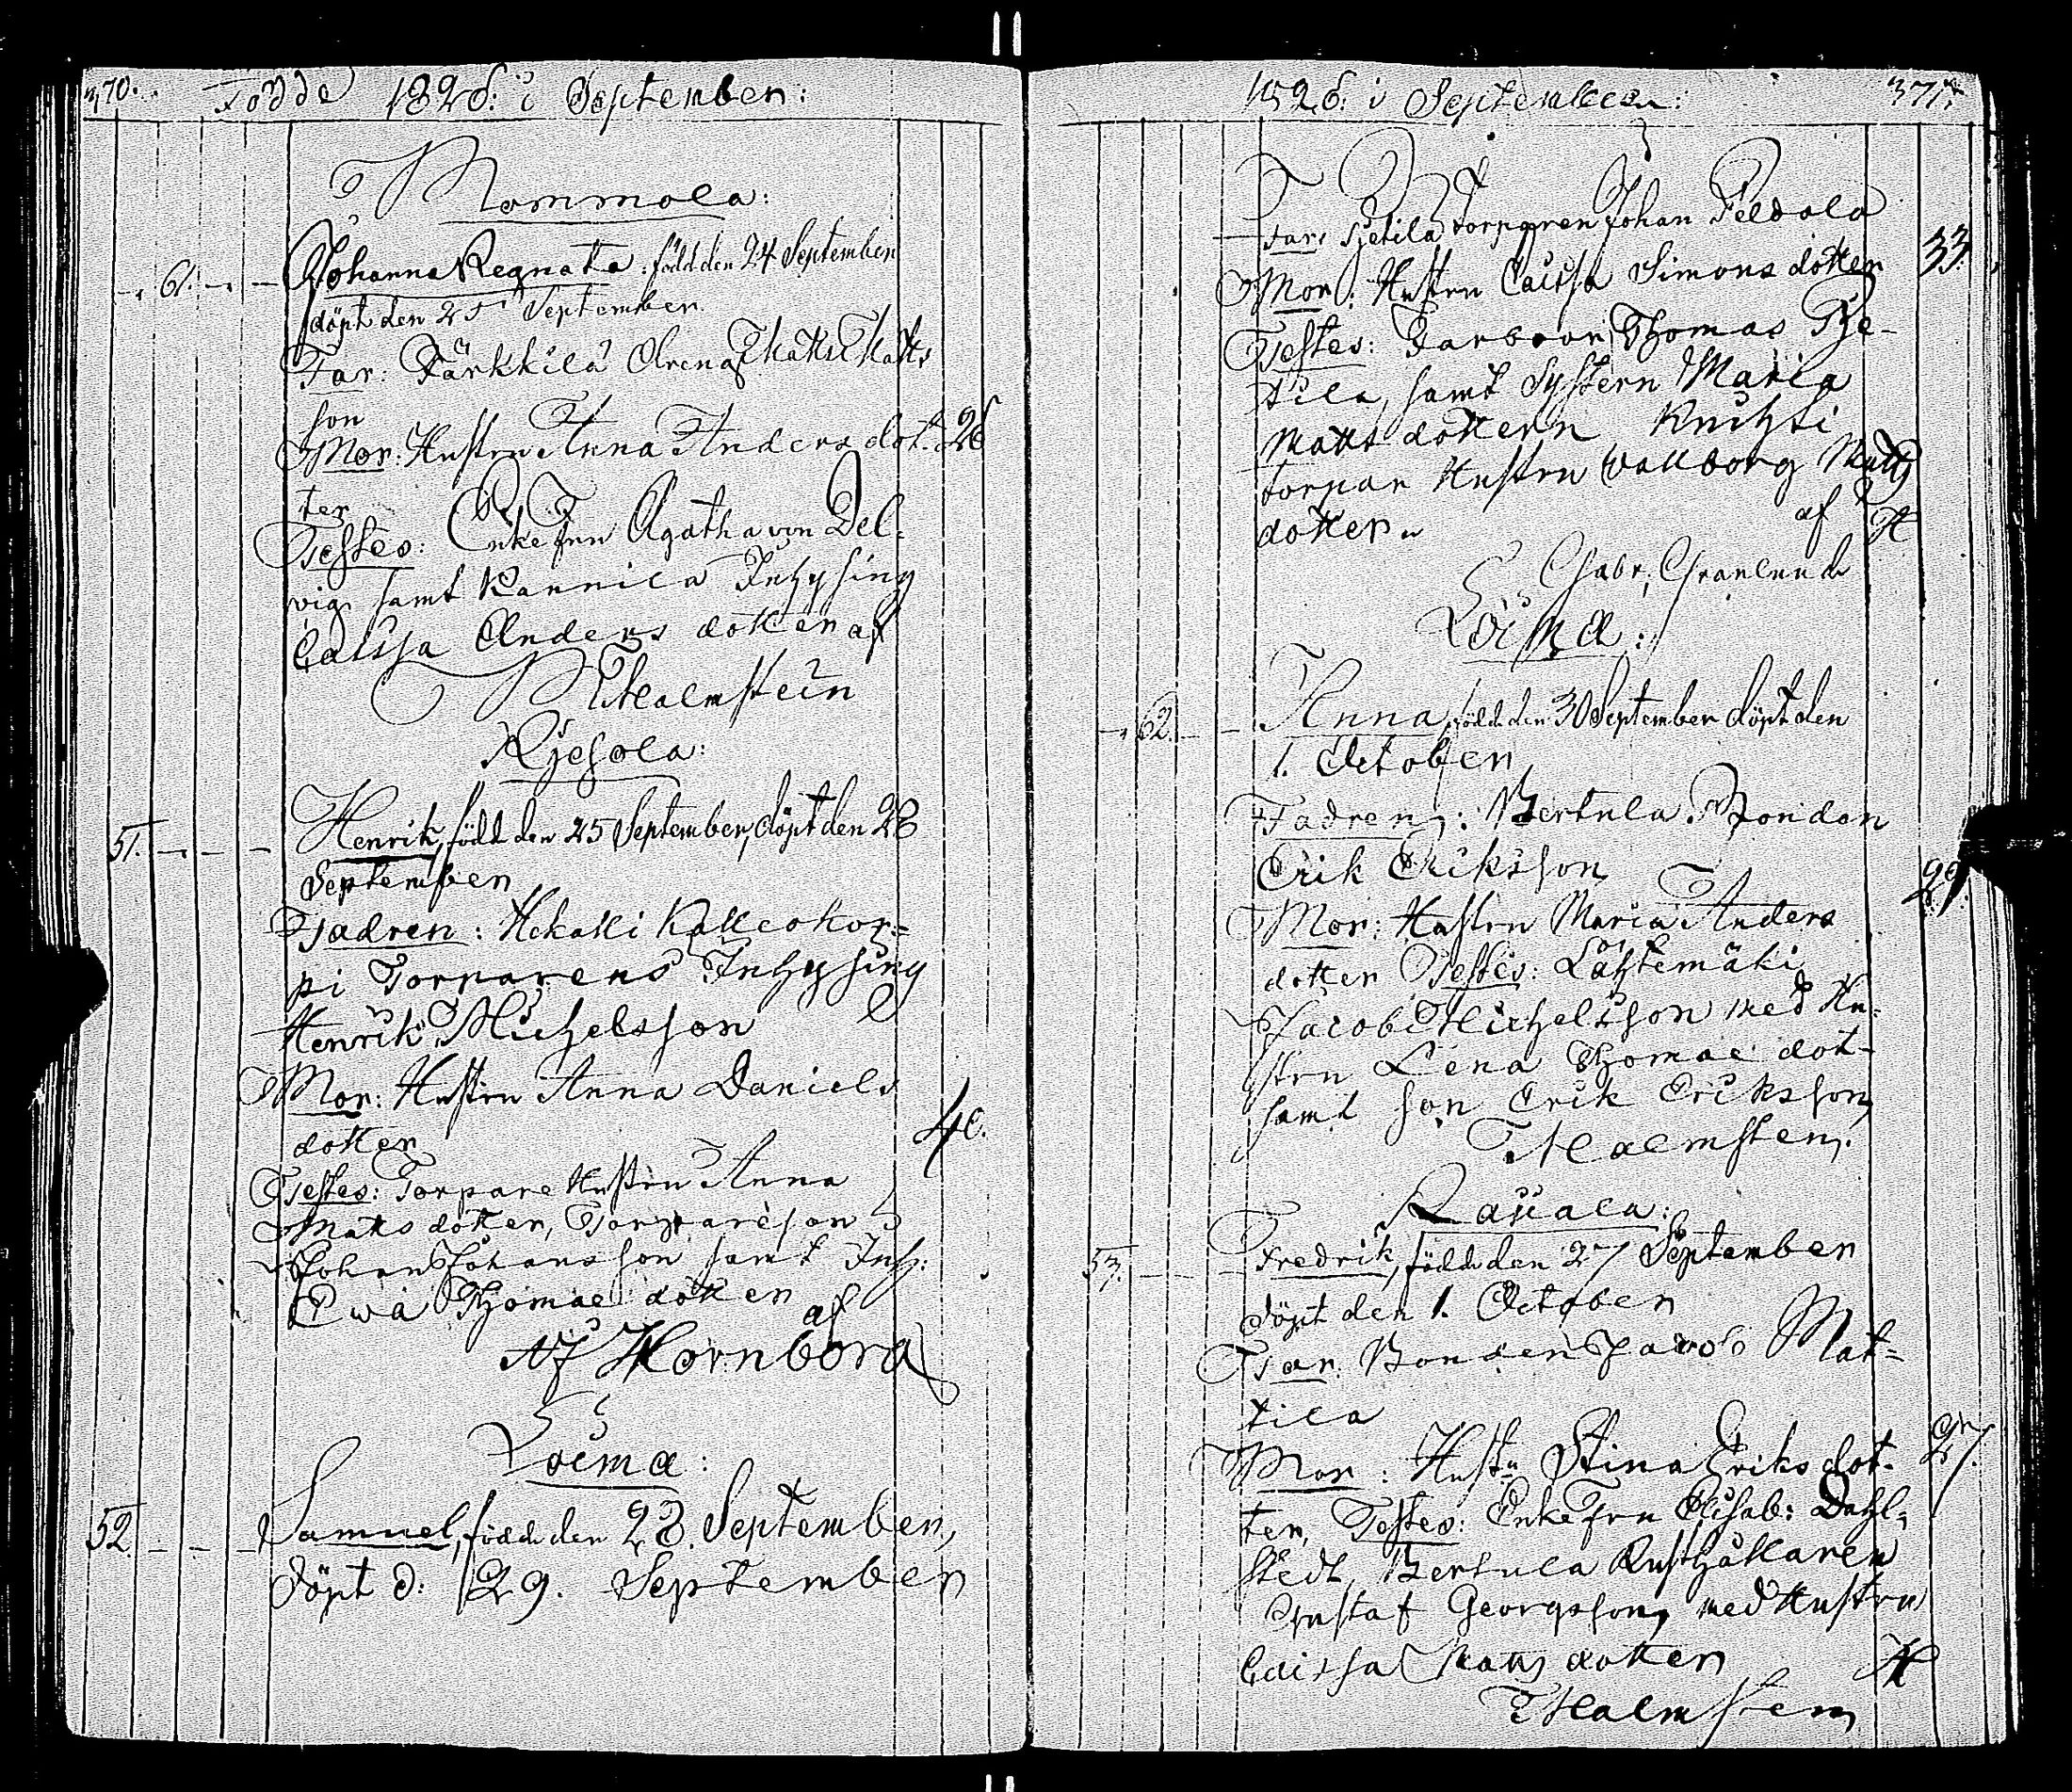 370. Födde 1826. i September:
Mommola:
61. Johanna Regnata: född den 24 September
döpt den 25 September.
Far: Kärkkilä Dreng Matts Matts
son
Mor: Hustru Anna Anders dot: 26
ter
Testes: Enkefru Agatha von Del:
vig samt Kannila Inhysing
Caissa Anders dotter af
Malmstein
Kjesola:
51. Henrik, född den 25 September, döpt den 28
September
Fadren: Hekalli Kallcokor=
pi Torparens Inhysing
Henrik Michelsson
Mor: Hustru Anna Daniels
dotter 40.
Testes: Torpare Hustru Anna
Matts dotter, Torpareson
Johan Johansson samt Inh:
Ewa Thomae dotter
af
Hornborg
Loima:
52. Samuel, född den 28. September,
Döpt d: 29. September
1826. i September: 371.
Far: Torparen Johan Peldola
Mor: Hustru Caissa Simons dotter 33.
Testes: Farbror Thomas
tila, samt Systern Maria
Matts dottern
torpar Hustru Wallborg Matts
dotter. af
Gabr. Granlund
Loima:
62. Anna, född den 30 September döpt den
1. October
Fadren: Bertula Bondan
Erik Eriksson 29.
Mor: Hustru Maria Anders
dotter Testes: Lähtemäki
Jacob Michelsson med Hu-
stru Lena Thomae dot-
samt son Erik Eriksson,
Malmsten.
Rauala:
53. Fredrik, född den 27 September
Döpt den 1. October
Far: Bonden Jacob Mat=
tila
Mor: Hustru Stina Eriks dot- 27.
ter, Testes: Enkefru Elisab: Dahl=
stedt, Bertula Rusthållaren
Gustaf Georgsson, med Hustru
Caissa Matts dotter
Malmsten